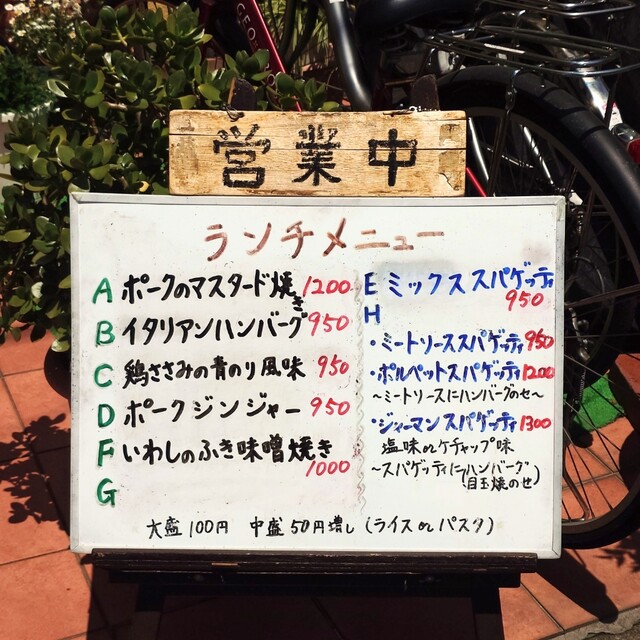 GEOS
営業中
ランチメニュー
A ポークのマスタード焼き 1200
B イタリアンハンバーグ 950
C 鶏ささみの青のり風味 950
D ポークジンジャー 950
F いわしのふき味噌焼き
1000
G
E ミックススパゲッティ
950
H
・ミートソーススパゲッティ 950
・ポルペットスパゲッティ 1200
〜ミートソースにハンバーグのせ〜
・ジャーマンスパゲッティ 1300
塩味orケチャップ味
〜スパゲッティにハンバーグ
目玉焼のせ)
大盛100円 中盛50円増し(ライスorパスタ)